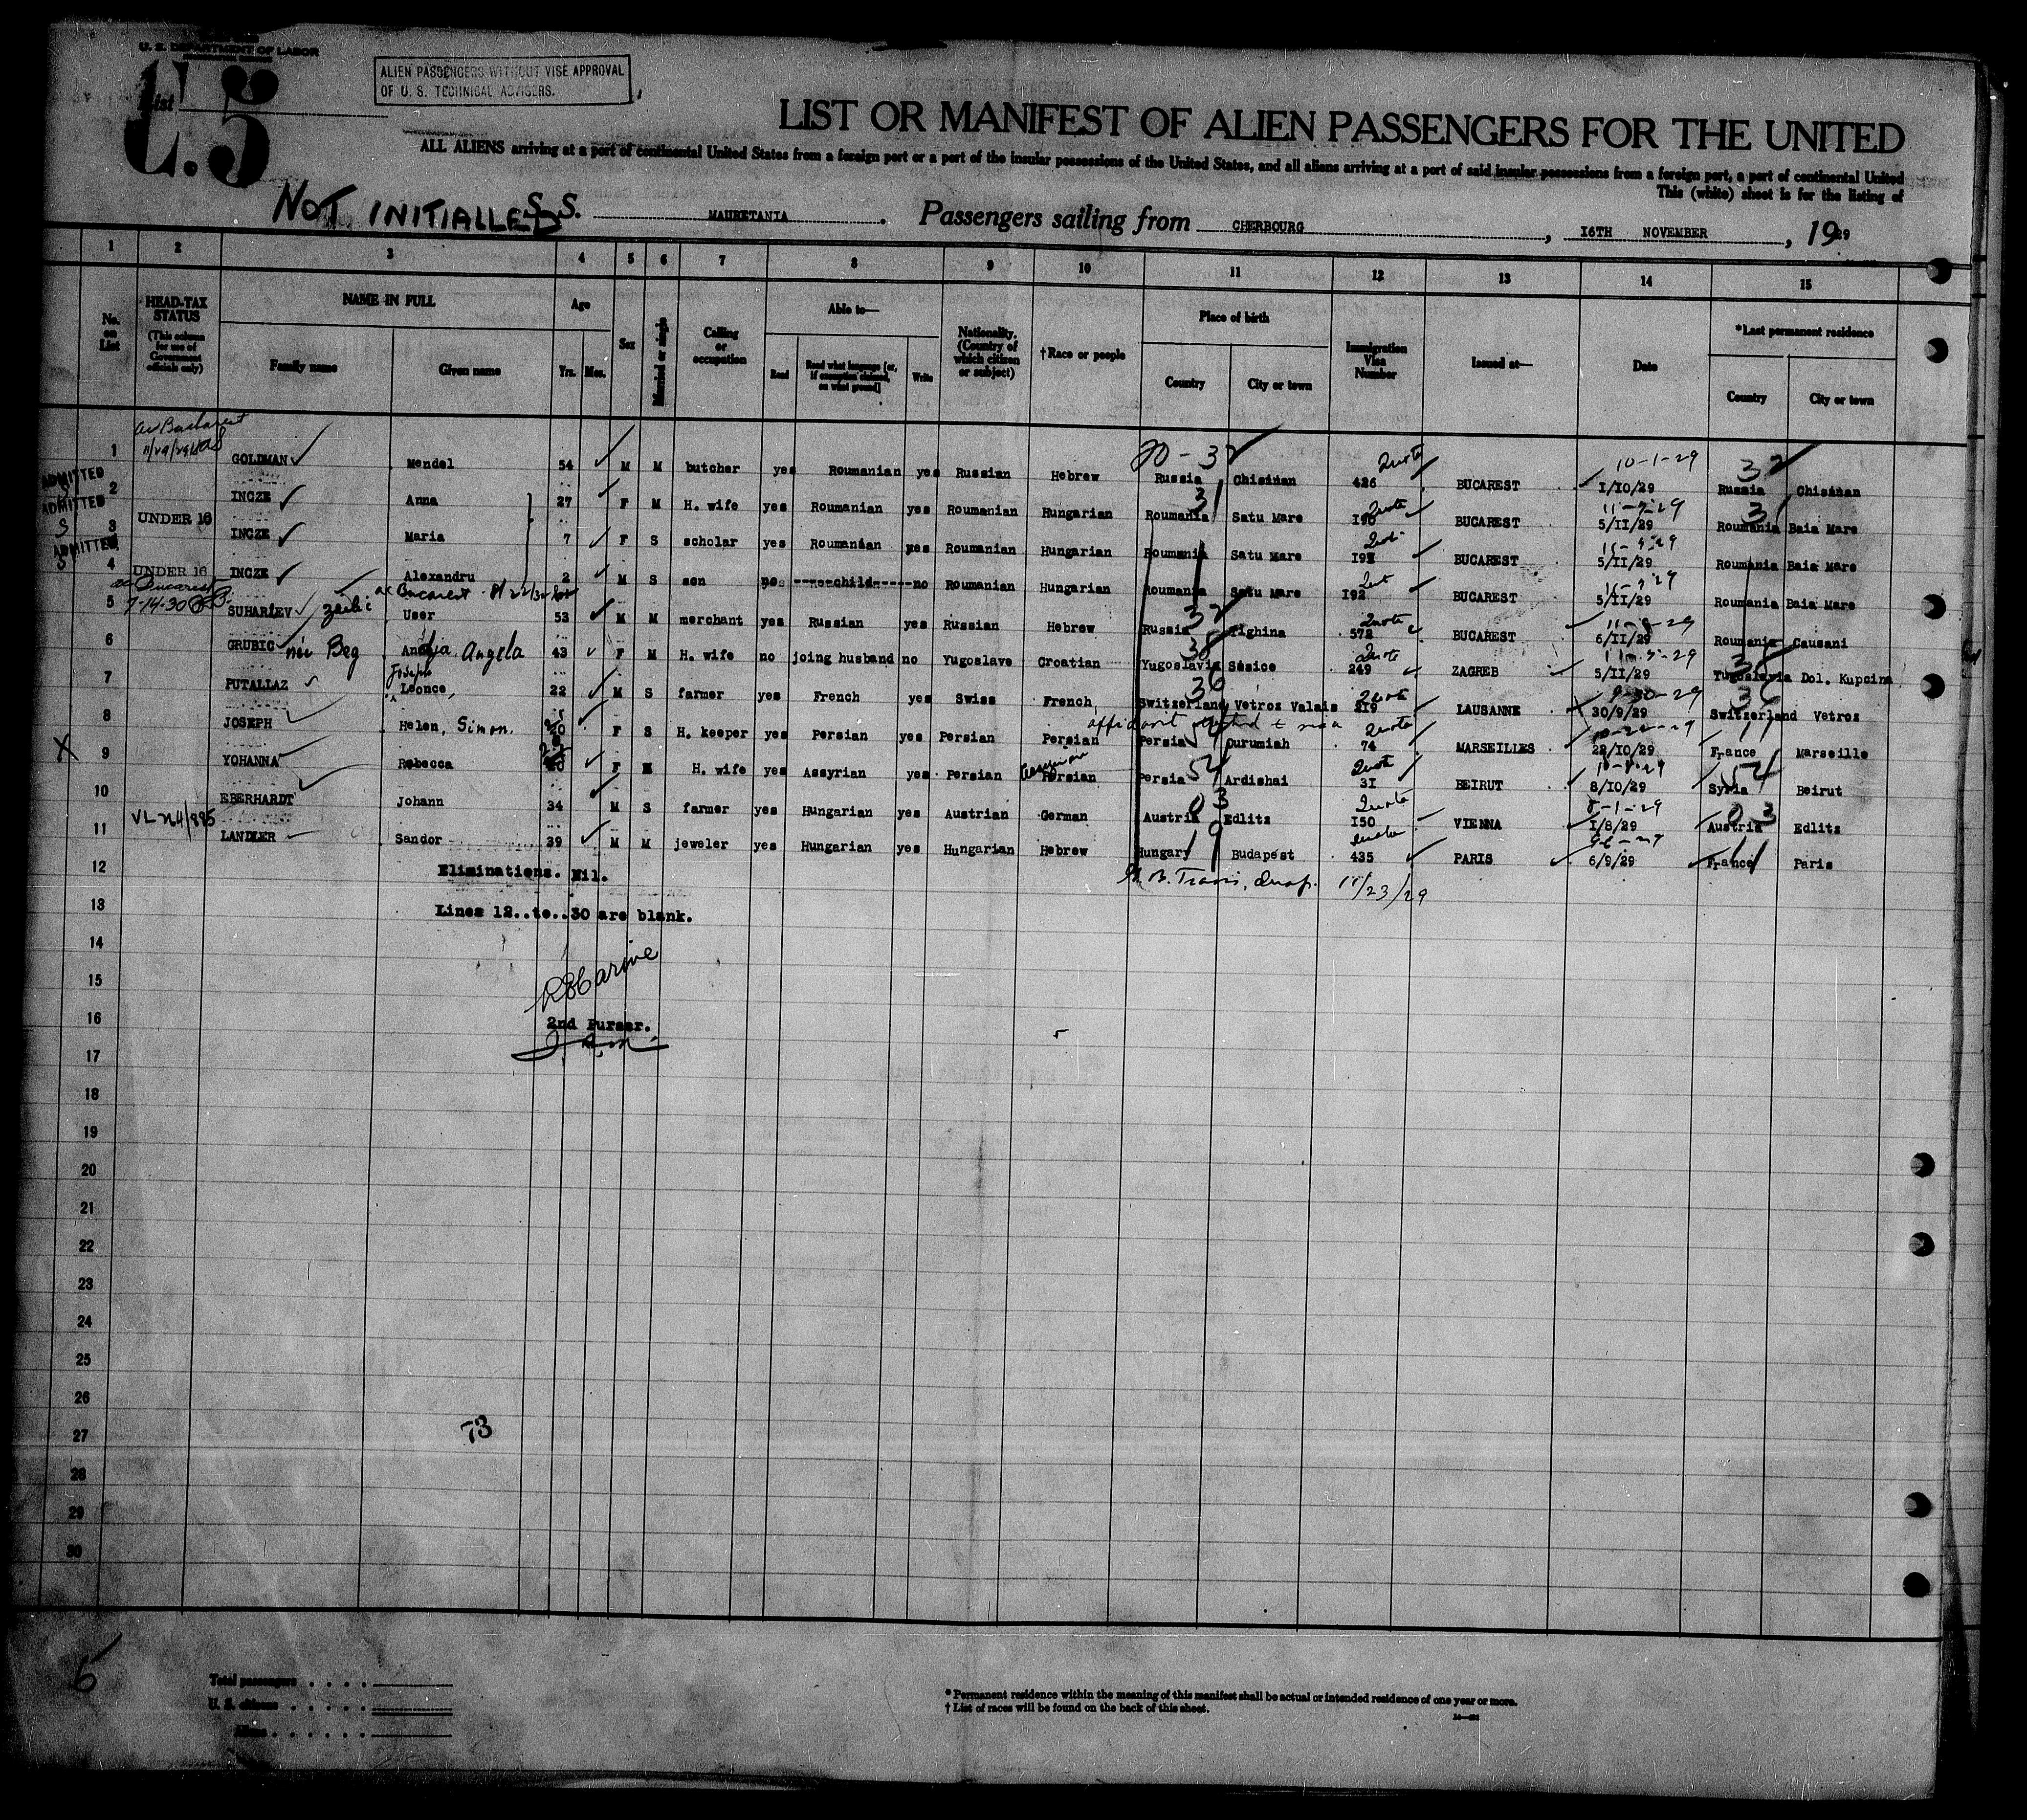 U. S. DEPARTMENT OF LABOR
ALIEN PASSENGERS WITHOUT VISE APPROVAL
OF U. S. TECHNICAL ADVISERS.
List
5
LIST OR MANIFEST OF ALIEN PASSENGERS FOR THE UNITED
ALL ALIENS arriving at a port of continental United States from a foreign port or a port of the insular possessions of the United States, and all aliens arriving at a port of said insular possessions from a foreign port, a port of continental United
This (white) sheet is for the listing of
NOT INITIALLED
S. S. MAURETANIA. Passengers sailing from CHERBOURG, 16TH NOVEMBER, 1929
1 2 3 4 5 6 7 8 9 10 11 12 13 14 15
No. on List
HEAD-TAX STATUS
(This column for use of Government officials only)
NAME IN FULL
Family name Given name
Age
Yrs. Mos.
Sex
Married or single
Calling or occupation
Able to—
Read Read what language [or, if exemption claimed, on what ground] Write
Nationality. (Country of which citizen or subject)
†Race or people
Place of birth
Country City or town
Immigration Visa Number
Issued at—
Date
*Last permanent residence
Country City or town
ac Bucharest
11/29/29
30-32 Quota 10-1-29 32
1 GOLDMAN Mendel 54 M M butcher yes Roumanian yes Russian Hebrew Russia Chisinan 426 BUCAREST 1/10/29 Russia Chisinan
ADMITTED
31 Quota 31
2 INCZE Anna 27 F M H. wife yes Roumanian yes Roumanian Hungarian Roumania Satu Mare 190 BUCAREST 5/II/29 Roumania Baia Mare
ADMITTED
S UNDER 16
3 INCZE Maria 7 F S scholar yes Roumanian yes Roumanian Hungarian Roumania Satu Mare BUCAREST 5/II/29 Roumania Baia Mare
ADMITTED
S UNDER 16
4 INCZE Alexandru 2 M S son no child no Roumanian Hungarian Roumania Satu Mare 192 BUCAREST 5/II/29 Roumania Baia Mare
ac Bucarest
7-14-30
ac Bucarest
32 Quota
5 SUHARIEV User 53 M M merchant yes Russian yes Russian Hebrew Russia Tighina 572 BUCAREST 6/II/29 Roumania Causani
38 Quota 38
6 GRUBIC née Beg Andja, Angela 43 F M H. wife no joing husband no Yugoslave Croatian Yugoslavia Sesice 249 ZAGREB 5/II/29 Yugoslavia Dol. Kupcina
Joseph 36 Quota 9-30-29 36
7 PUTALLAZ Leonce, 22 M S farmer yes French yes Swiss French Switzerland Vetroz Valais 219 LAUSANNE 30/9/29 Switzerland Vetroz
Quota
8 JOSEPH Helen, Simon. 20 F S H. keeper yes Persian yes Persian Persian Persia Ourumiah 74 MARSEILLES 22/10/29 France Marseille
54 Quota 54
X 9 YOHANNA Rebecca F M H. wife yes Assyrian yes Persian Persian Persia Ardishai 31 BEIRUT 8/10/29 Syria Beirut
03 Quota 8-1-29 03
10 EBERHARDT Johann 34 M S farmer yes Hungarian yes Austrian German Austria Edlitz 150 VIENNA 1/8/29 Austria Edlitz
19 Quota
11 LANDLER Sandor 39 M M jeweler yes Hungarian yes Hungarian Hebrew Hungary Budapest 435 PARIS 6/9/29 France Paris
12 Eliminations. Nil. 11/23/29
13 Lines 12..to..30 are blank.
14
15
16 2nd Purser.
17
18
19
20
21
22
23
24
25
26
27 73
28
29
30
5
Total passengers
U. S. citizens
Aliens
*Permanent residence within the meaning of this manifest shall be actual or intended residence of one year or more.
†List of races will be found on the back of this sheet.